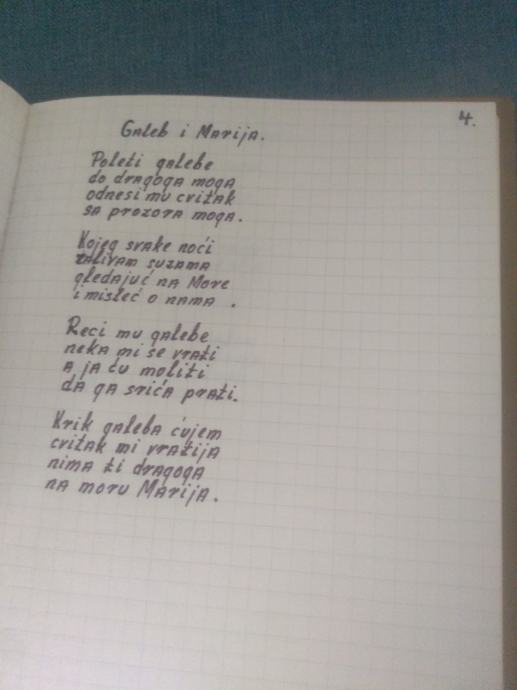 4.
Galeb i Marija.
Poleti galebe
do dragoga moga
odnesi mu cvitak
sa prozora moga.
Kojeg svake noći
zalivam suzama
gledajuć na More
i misleć o nama .
Reci mu galebe
neka mi se vrati
a ja ću moliti
da ga srića prati.
Krik galeba ćujem
cvitak mi vratija
nima ti dragoga
na moru Marija.